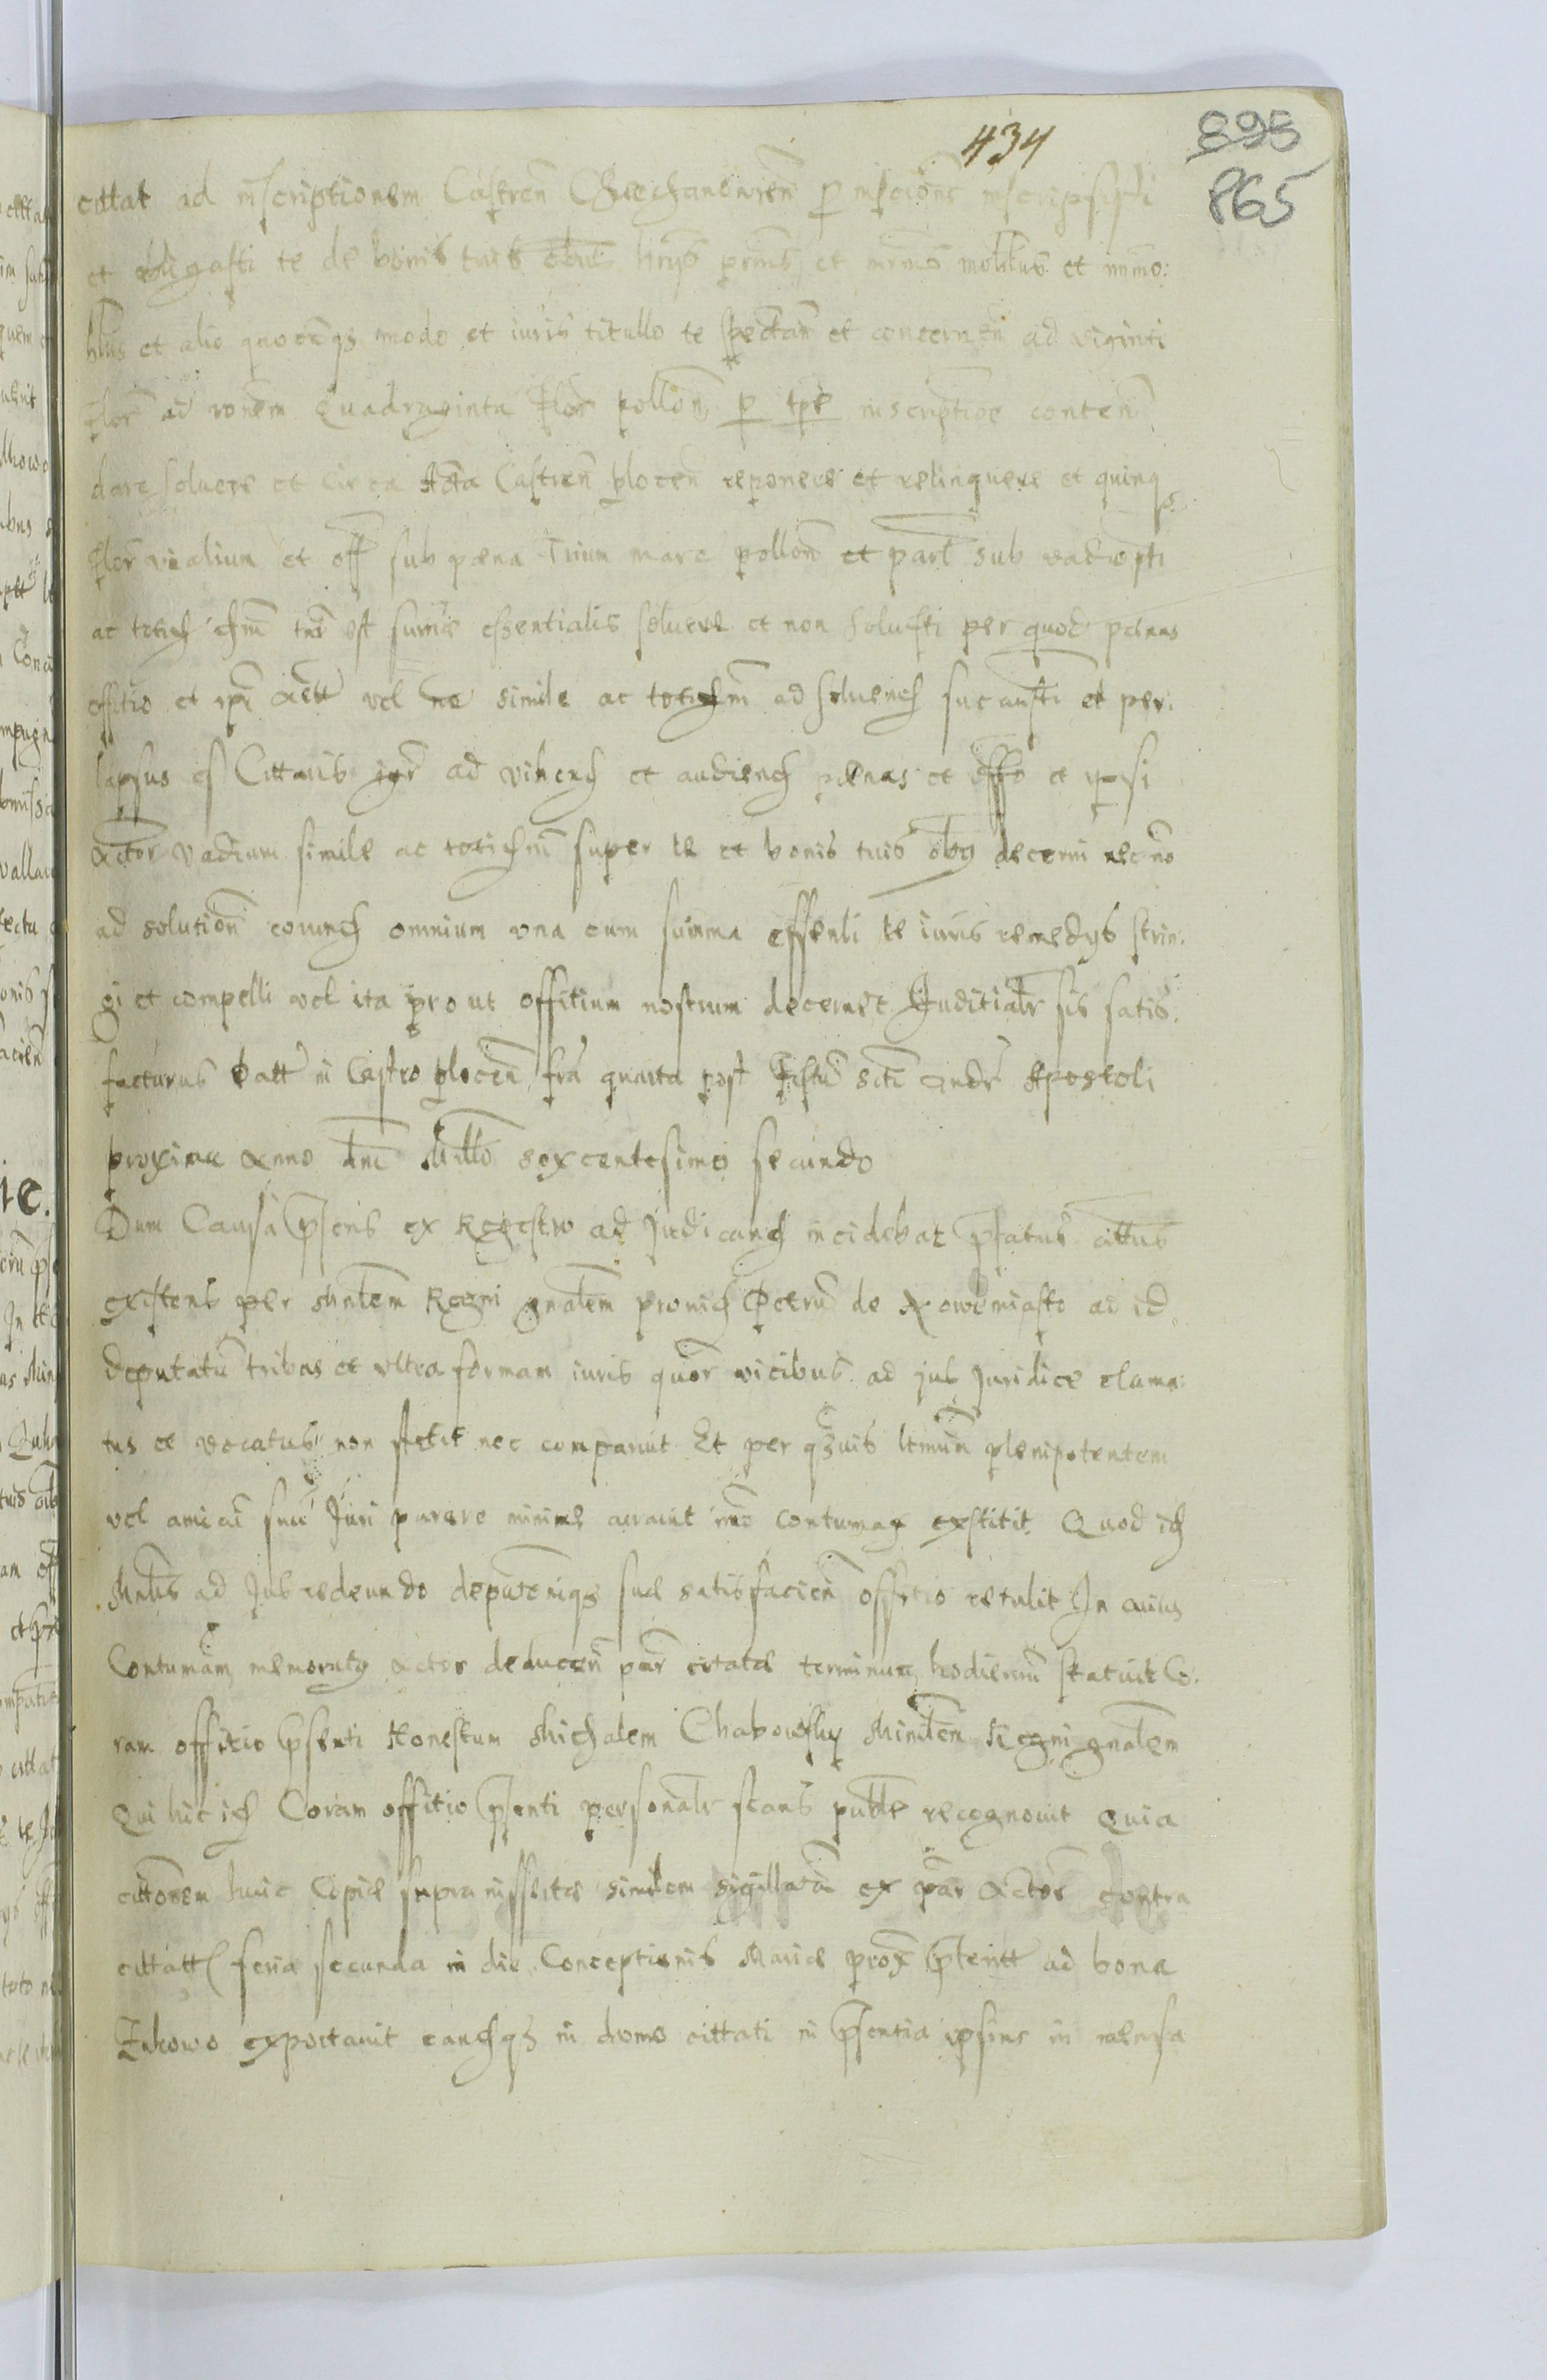 434
895
865
cittat ad inscriptionem Castren Ciechanovien p inscions inscripsisti
et obligasti te de bonis tuis oibus hrys prnis et mrmo mobilus et immo:
blus et alio quocunqз modo et iuris titullo te spectan et concernen ad viginti
flor ad ronem Quadraginta flor pollon p tpe inscriptioe conten
dare solvere et circa Acta Castren plocen reponere et relinquere et quinqз
flor vialium et off sub pæna Trium marc pollon et parl sub vadio pti
ac totidem summe essentialis solvere et non solvisti per quod pænas
offitio et ipi act vel simile ac totidem ad solvend succubuisti et per:
lapsus es Cittaris igr ad vidend et audiend pænas et offo et ipsi
actor vadium simile ac totidem super te et bonis tuis obg decerni recno
ad solution eorund omnium una cum summa essenli te iuris remedys strin:
gi et compelli vel ita prout offitium nostrum decernet Juditialr sis satis:
facturus Datt in Castro plocen fra quarta post festu scti Andr Apostoli
proxima Anno dni Millo sexcentesimo secundo
Dum Causa psens ex Regestro ad Judicand incidebat pfatus cittus
existens per Mnlem Regni gnalem provid Petru de Nowemiasto ad id
deputatu tribus et ultra formam iuris quor vicibus ad jus Juridice clama:
tus et vocatus non stetit nec comparuit Et per qзuis ltimun plenipotentem
vel amicu suu Juri parere minime curauit imo contumax exstitit Quod id
Mnlis ad Jus redeundo deputoniqз sue satisfacien offitio retulit In cuius
Contumam memoratg actor deducen par citatæ terminum hodiernu statuit Co:
ram offitio psenti Honestum Michalem Chabowsky Minilem Regni gnalem
Qui hic id Coram offitio psenti personalr stans puble recognovit Quia
cittonem huic Copiæ supra insertæ similem sigillata ex par Actor Contra
cittatt feria secunda in die Conceptionis Mariæ prox pterit ad bona
Zukowo exportavit eandqз in domo cittati in psentia ipsius in mensa